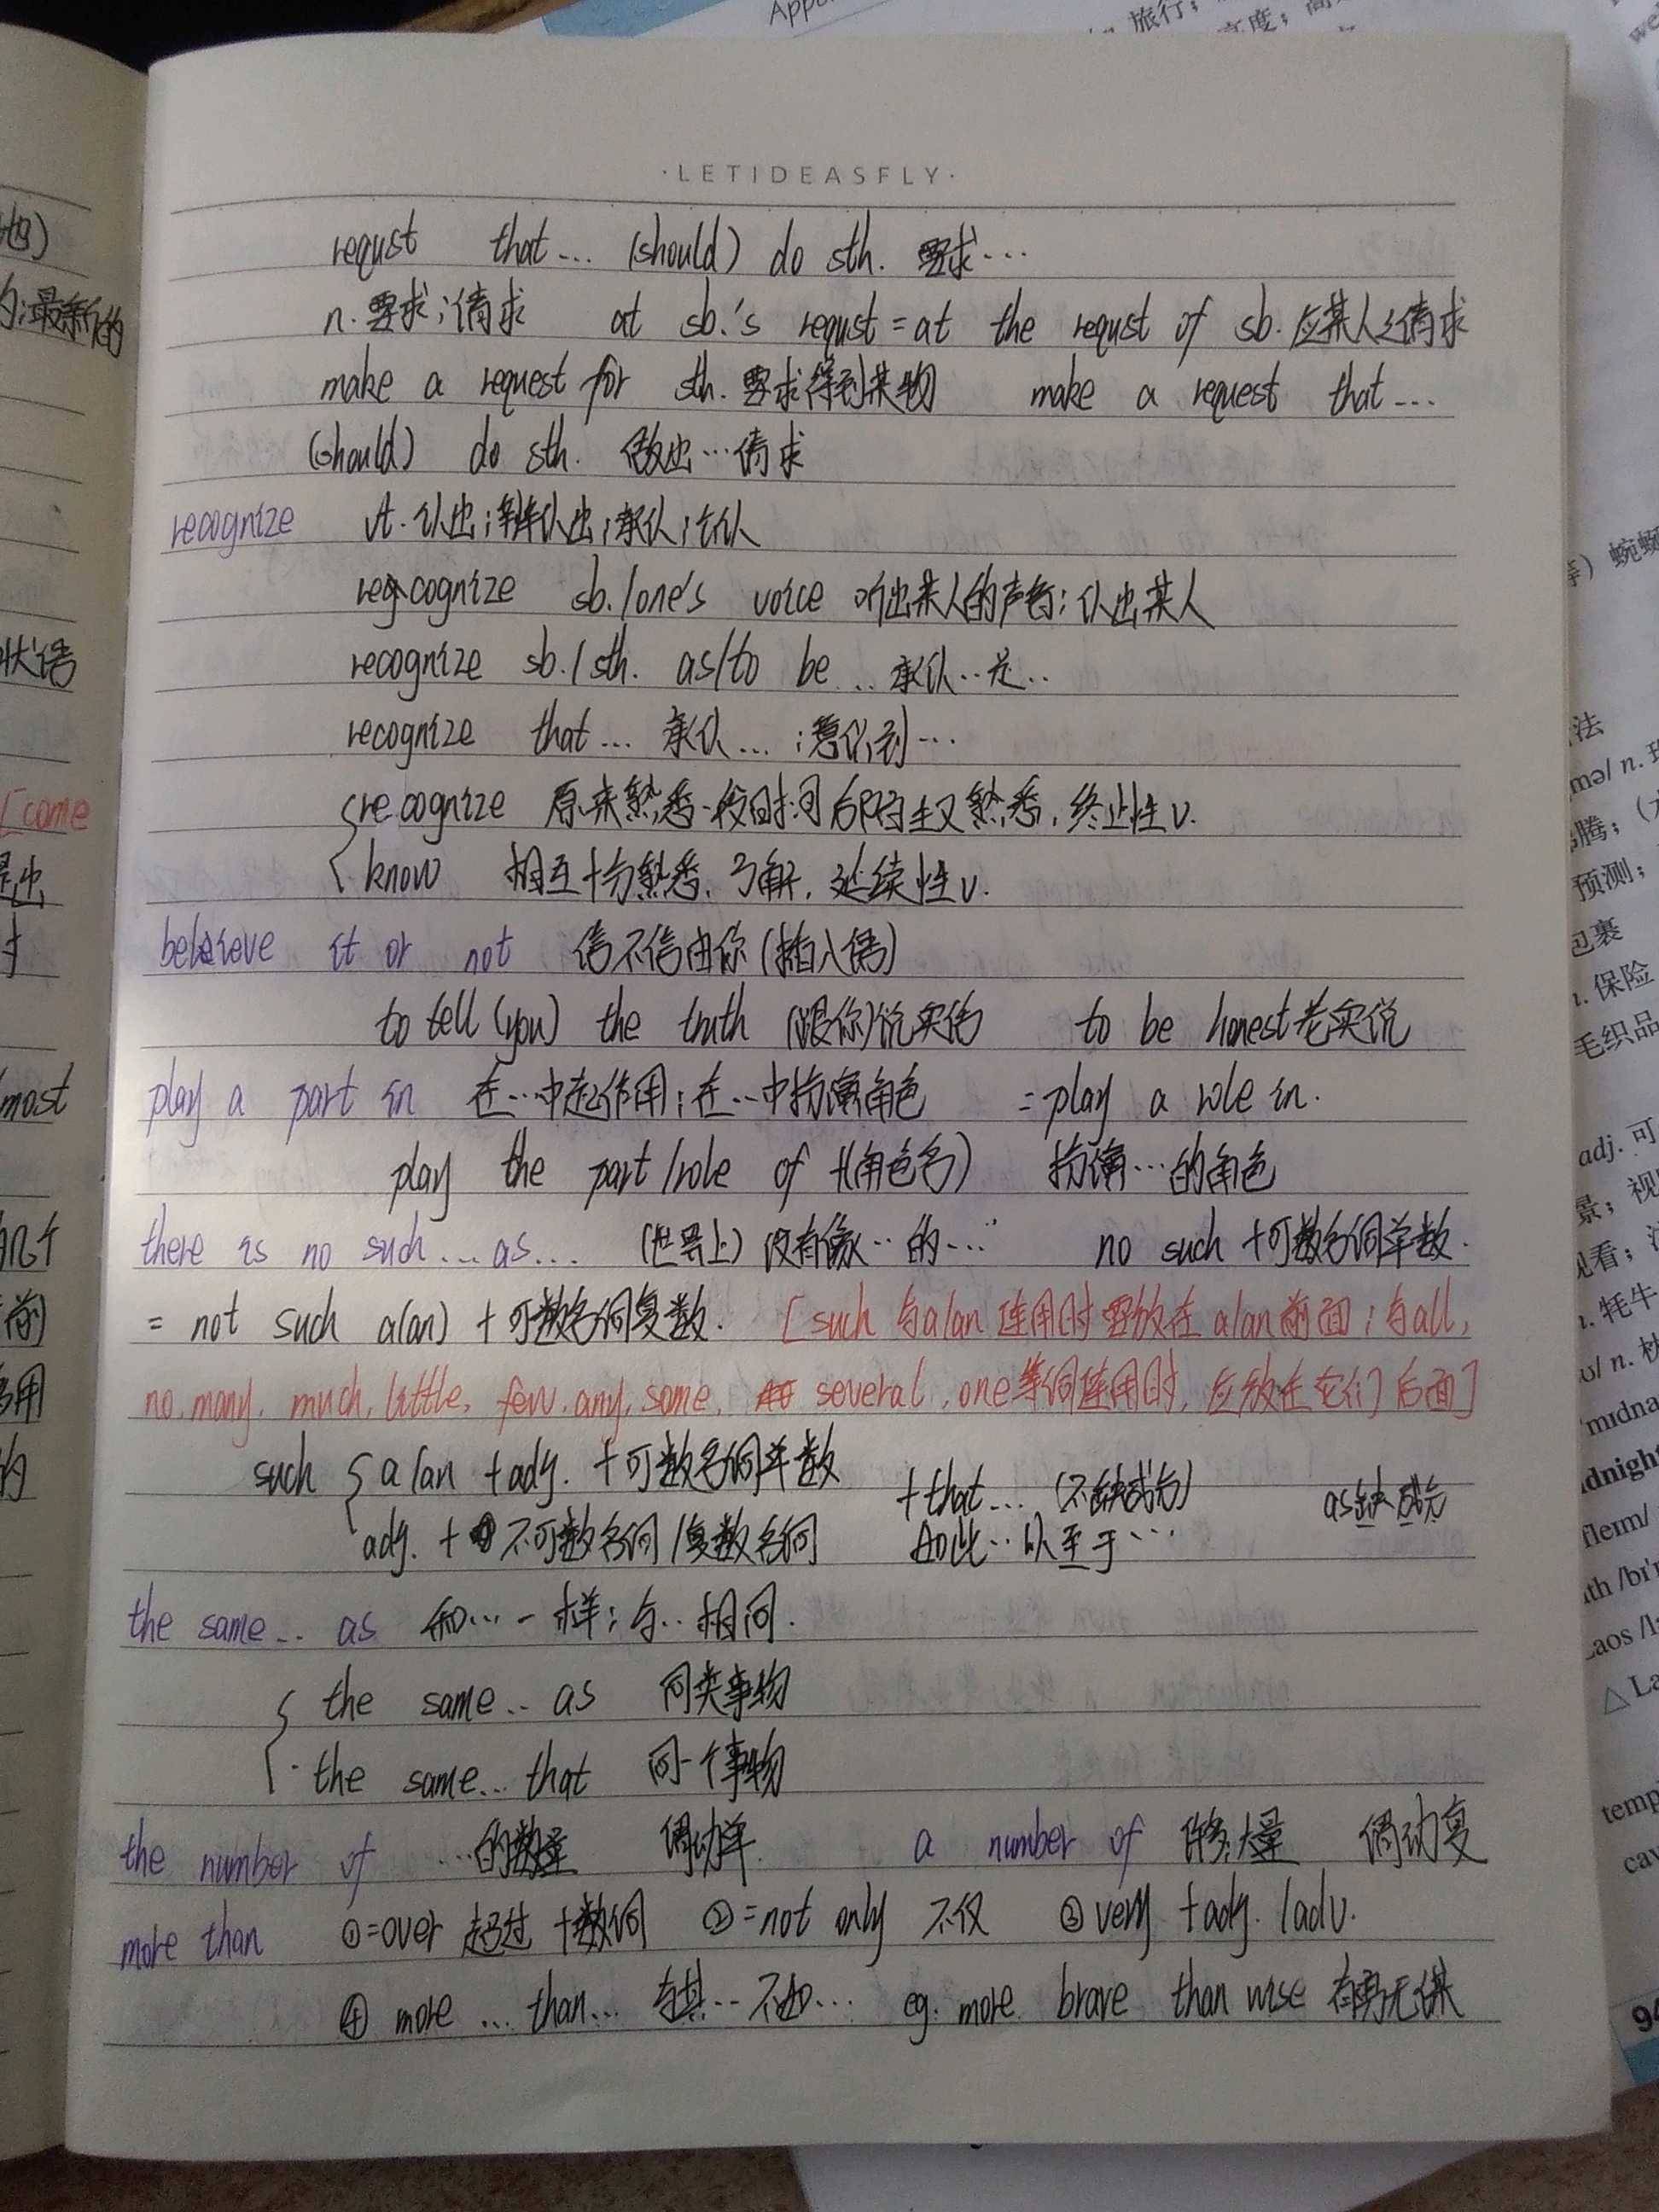 ·LETIDEASFLY·
requst that... (should) do sth. 要求...
n.要求;请求 at sb.'s requst = at the requst of sb. 应某人之请求
make a request for sth. 要求得到某物 make a request that...
(should) do sth. 做出...请求
recognize vt. 认出;辨认出;承认;公认
recognize sb./one's voice 听出某人的声音;认出某人
recognize sb./sth. as/to be ... 承认...是...
recognize that... 承认...;意识到...
recognize 原来熟悉一段时间后陌生又熟悉,终止性v.
know 相互十分熟悉、了解,延续性v.
believe it or not 信不信由你(插入语)
to tell (you) the truth (跟你)说实话 to be honest老实说
play a part in 在...中起作用;在...中扮演角色 =play a role in.
play the part/role of +(角色名) 扮演...的角色
there is no such... as... (世界上)没有像...的... no such +可数名词单数.
= not such a(an) +可数名词复数. [such 与a/an 连用时要放在a/an前面;与all,
no, many, much, little, few, any, some, several, one等词连用时,应放在它们后面]
such { a/an +adj. +可数名词单数 +that... (不缺成分) as缺成分
adj. + 不可数名词/复数名词 如此...以至于...
the same... as 和...一样;与...相同.
{ the same... as 同类事物
the same... that 同一个事物
the number of ...的数量 谓动单 a number of 许多;大量 谓动复
more than ①=over 超过 +数词 ②=not only 不仅 ③very +adj. /adv.
④ more ... than... 与其...不如... eg. more brave than wise 有勇无谋
最新的
状语
[come
most
几个
的
旅行;
法
预测;
包裹
n. 保险
毛织品
adj. 可
n. 牦牛
temp
cav
94